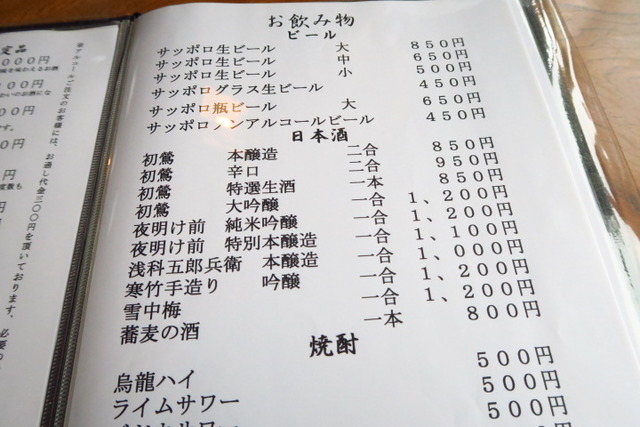 定品
０００円
１００円
です。
０円
円
０円
アルコールご注文のお客様には、お通し代金三〇〇円を頂いております。
お飲み物
ビール
サッポロ生ビール 大 ８５０円
サッポロ生ビール 中 ６５０円
サッポロ生ビール 小 ５００円
サッポログラス生ビール ４５０円
サッポロ瓶ビール 大 ６５０円
サッポロノンアルコールビール ４５０円
日本酒
初鶯 本醸造 二合 ８５０円
初鶯 辛口 二合 ９５０円
初鶯 特選生酒 一本 ８５０円
初鶯 大吟醸 一合 １、２００円
夜明け前 純米吟醸 一合 １、２００円
夜明け前 特別本醸造 一合 １、１００円
浅科五郎兵衛 本醸造 一合 １、０００円
寒竹手造り 吟醸 一合 １、２００円
雪中梅 一合 １、２００円
蕎麦の酒 一本 ８００円
焼酎
烏龍ハイ ５００円
ライムサワー ５００円
５００円